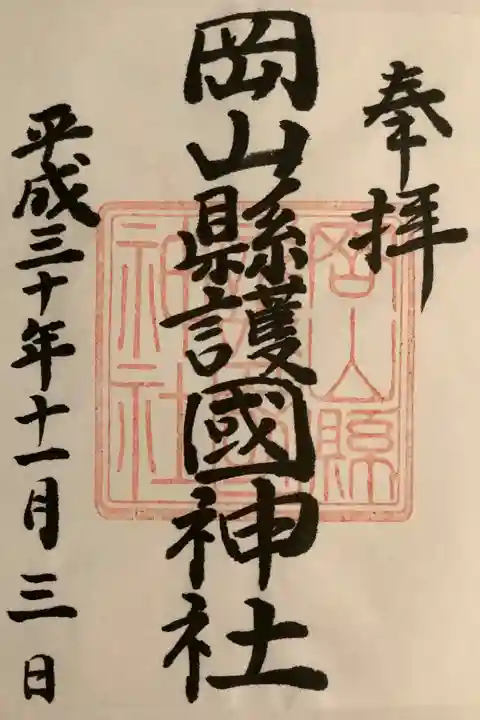 奉拝
岡山縣護國神社
平成三十年十一月三日
岡山縣
護國
神社